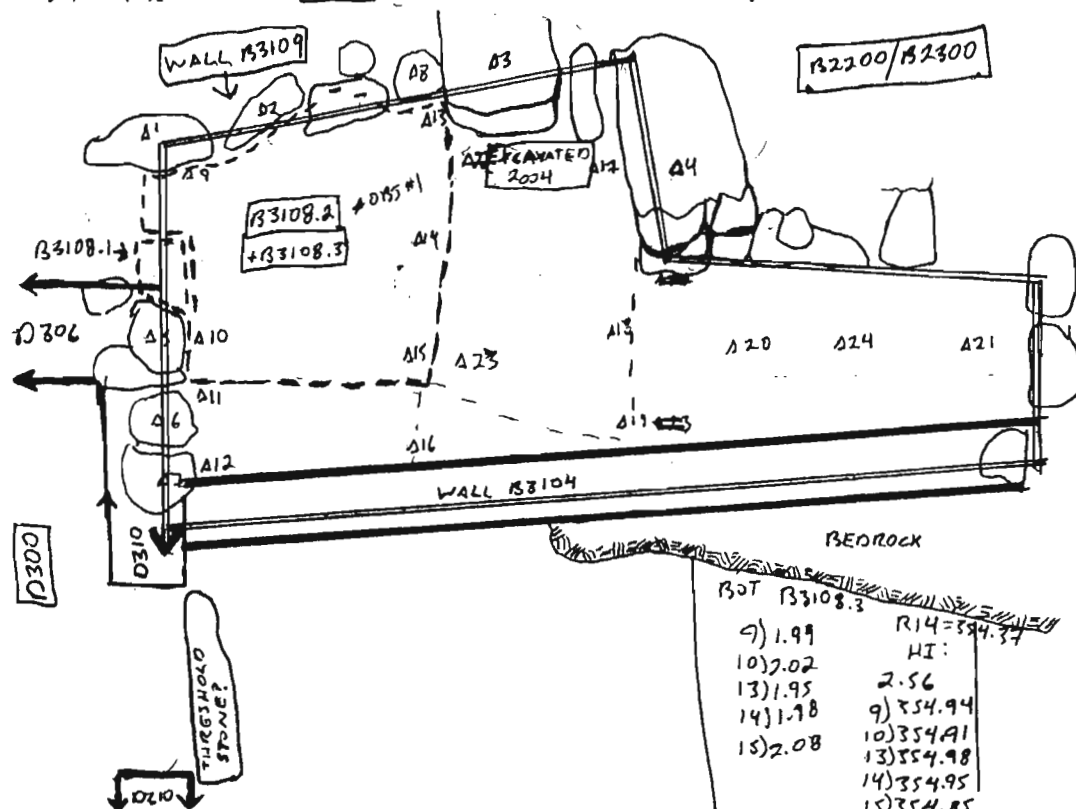 WALL B3109
B2200/B2300
Δ1
Δ2
Δ8
Δ3
Δ13
Δ9
EXCAVATED
2004
Δ17
Δ4
B3108.2
+B3108.3
OBS#1
Δ14
B3108.1
D306
Δ10
Δ15
Δ23
Δ20
Δ24
Δ21
Δ11
Δ6
Δ19
Δ16
Δ12
WALL B3104
D310
D300
BEDROCK
THRESHOLD
STONE?
BOT B3108.3
9) 1.99
10) 2.02
13) 1.95
14) 1.98
15) 2.08
R14=354.37
HI:
2.56
9) 354.94
10) 354.91
13) 354.98
14) 354.95
15) 354.85